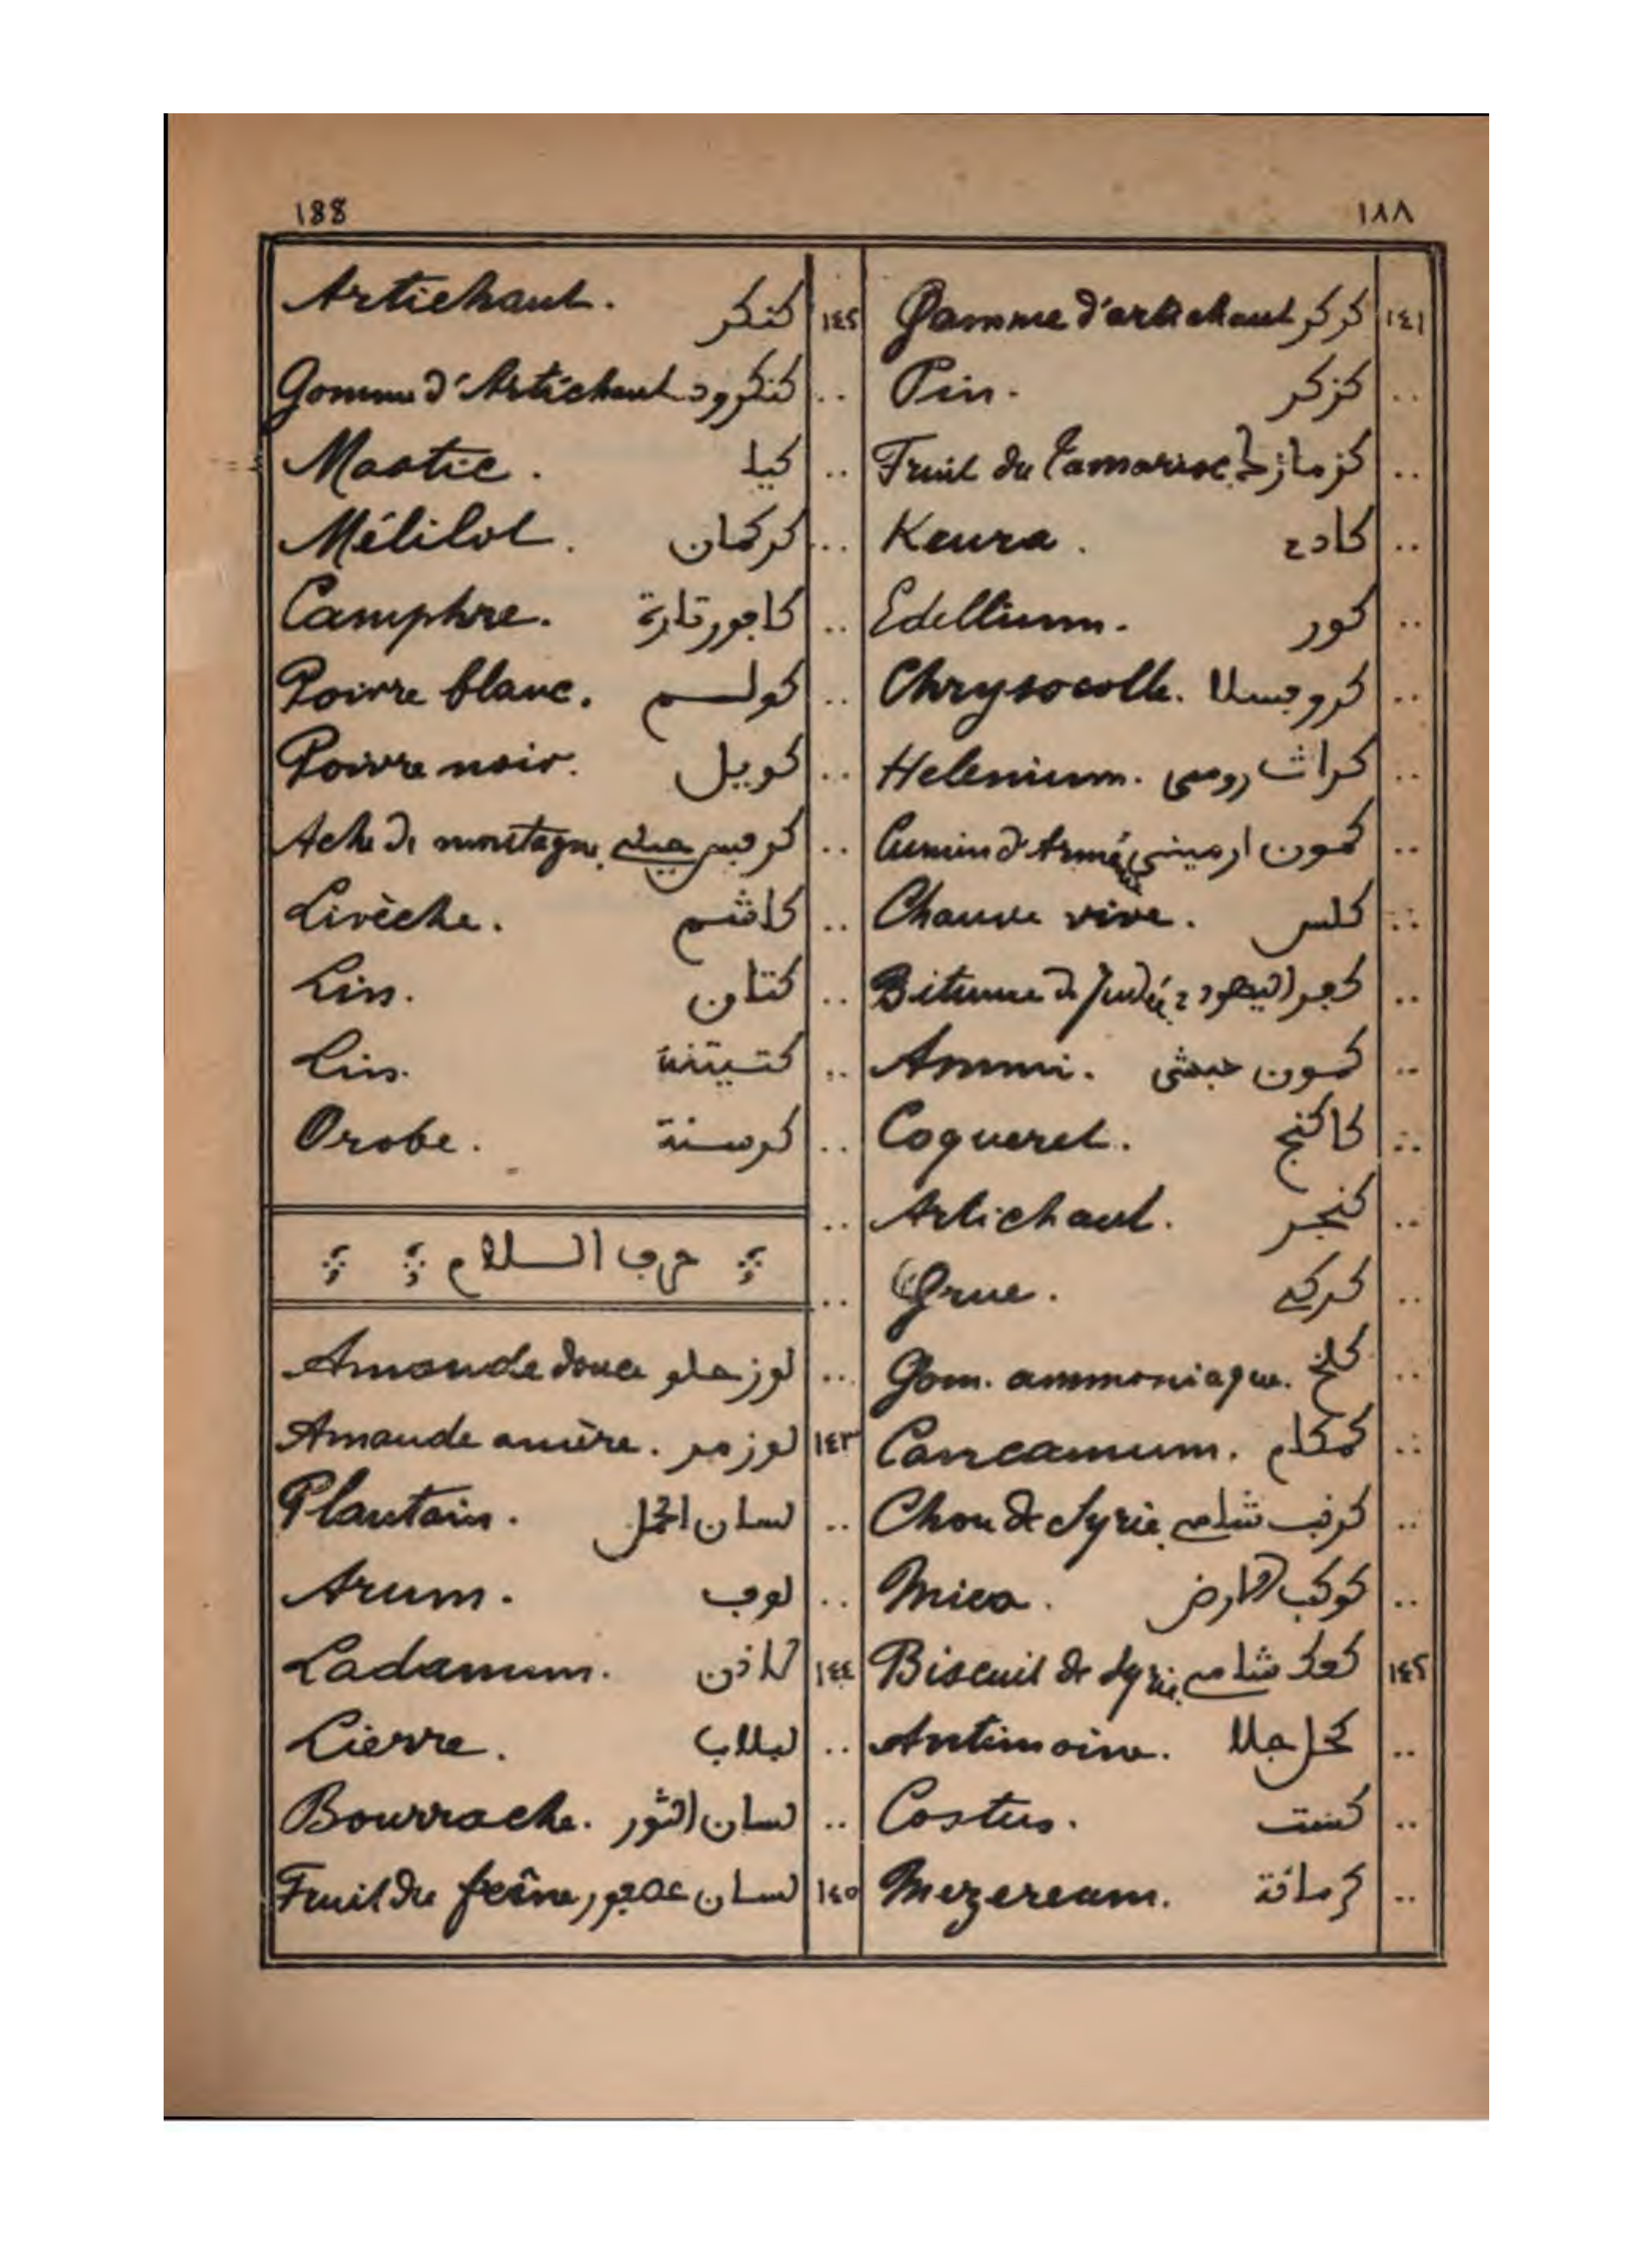 188 ١٨٨
١٤١ كركر Gomme d'artichaut
.. كزكر Pin.
.. كزمازك Fruit du tamarisc.
.. كادي Keura.
.. كور Edellium.
.. كروجسلا Chrysocolle.
.. كراث رومي Helenium.
.. كمون ارميني Cumin d'Arménie
.. كلس Chauve vive.
.. كفر اليهودي Bitume de Judée
.. كمون حبشي Ammi.
.. كاكنج Coqueret.
.. كنجر Artichaut.
.. كركي Grue.
.. كلخ Gom. ammoniaque.
.. كمكام Cancamum.
.. كرنب شامي Chou de Syrie.
.. كوكب الارض Mica.
١٤٢ كعك شامي Biscuit de Syrie.
.. كحل جلا Antimoine.
.. كست Costus.
.. كرمانة Mezereum.
١٤٢ كنكر Artichaut.
.. كنكرود Gomme d'Artichaut
.. كيا Mastic.
.. كركمان Mélilot.
.. كاجورقارة Camphre.
.. كولم Poivre blanc.
.. كوبيل Poivre noir.
.. كرفس جبلي Ache de montagne.
.. كاشم Livèche.
.. كتان Lin.
.. Lin.
.. كرسنة Orobe.
حرف السلام
.. لوز حلو Amande douce
١٤٣ لوز مر Amande amère.
.. لسان الحمل Plantain.
.. لوف Arum.
١٤٤ لاذن Ladanum.
.. لبلاب Lierre.
.. لسان الثور Bourrache.
١٤٥ لسان عصفور Fruit du frêne